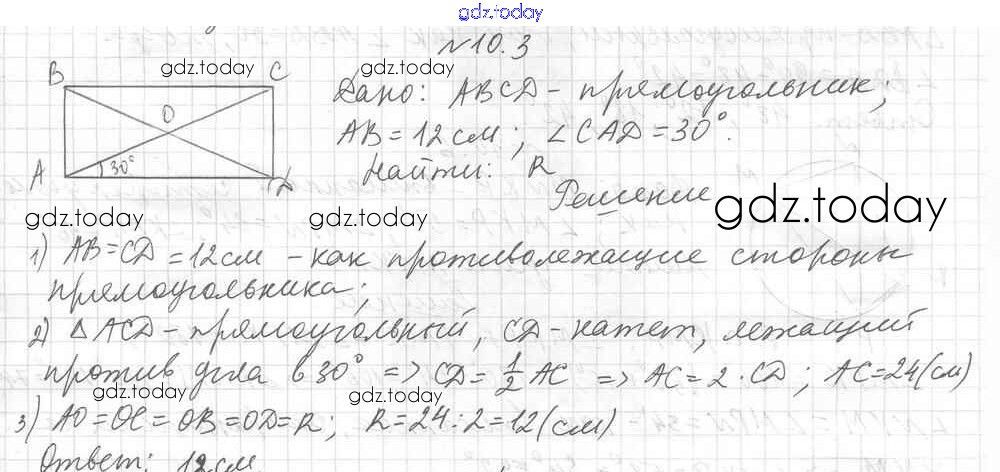 gdz.today
№10.3
B gdz.today C gdz.today
Дано: ABCD - прямоугольник;
O
AB = 12 см; ∠CAD = 30°.
A 30° D
Найти: R
Решение
gdz.today gdz.today gdz.today
1) AB = CD = 12 см - как противолежащие стороны
прямоугольника;
2) △ACD - прямоугольный, CD - катет, лежащий
против угла в 30° => CD = 1/2 AC => AC = 2 · CD; AC = 24 (см)
gdz.today gdz.today
3) AO = OC = OB = OD = R; R = 24 : 2 = 12 (см)
Ответ: 12 см.